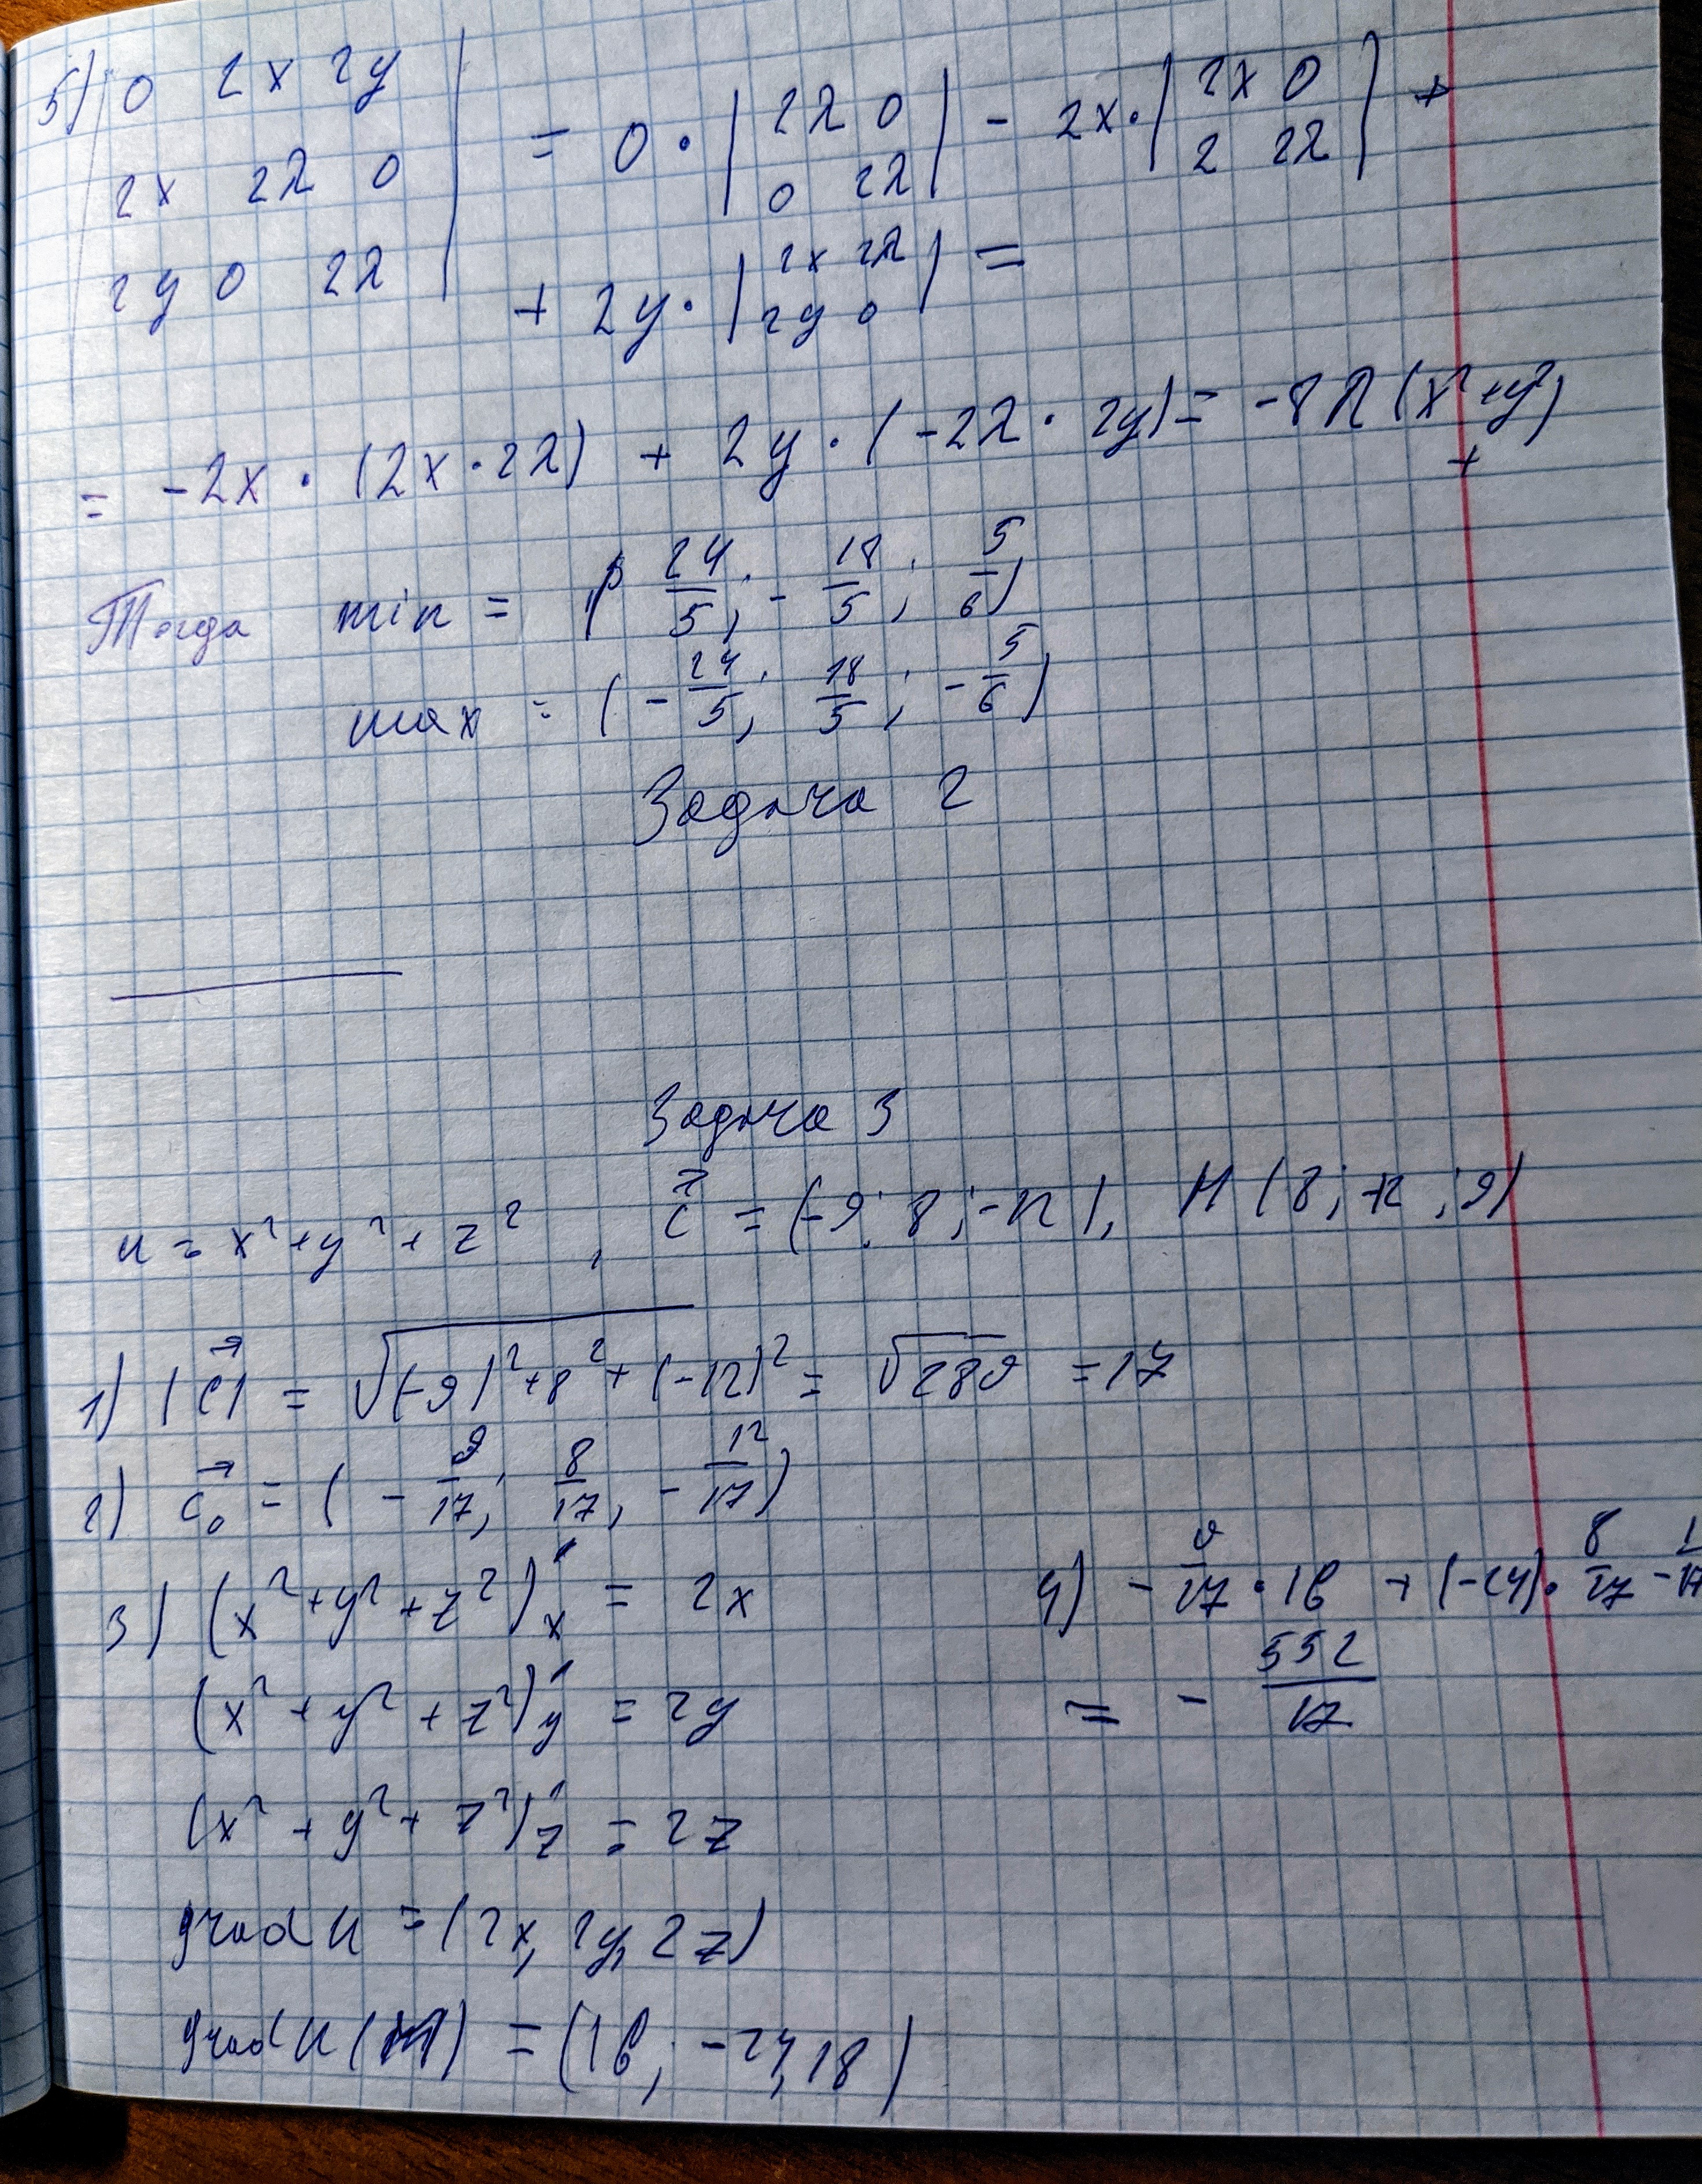 5) | 0 2x 2y |
| 2x 2λ 0 | = 0 · | 2λ 0 | - 2x · | 2x 0 | +
| 2y 0 2λ | | 0 2λ | | 2 2λ |
+ 2y · | 2x 2λ | =
| 2y 0 |
= -2x · (2x · 2λ) + 2y · (-2λ · 2y) = -8λ (x² + y²)
+
Тогда min = ( 24/5 ; - 18/5 ; 5/6 )
max = ( - 24/5 ; 18/5 ; - 5/6 )
Задача 2
Задача 3
u = x² + y² + z² , c⃗ = (-9; 8; -12), M (8; -12; 9)
1) |c⃗| = √((-9)² + 8² + (-12)²) = √289 = 17
2) c₀⃗ = ( - 9/17 ; 8/17 ; - 12/17 )
3) (x² + y² + z²)'x = 2x
(x² + y² + z²)'y = 2y
(x² + y² + z²)'z = 2z
grad u = (2x, 2y, 2z)
grad u (M) = (16; -24, 18)
4) - 9/17 · 16 + (-24) · 8/17 -
= - 552/17